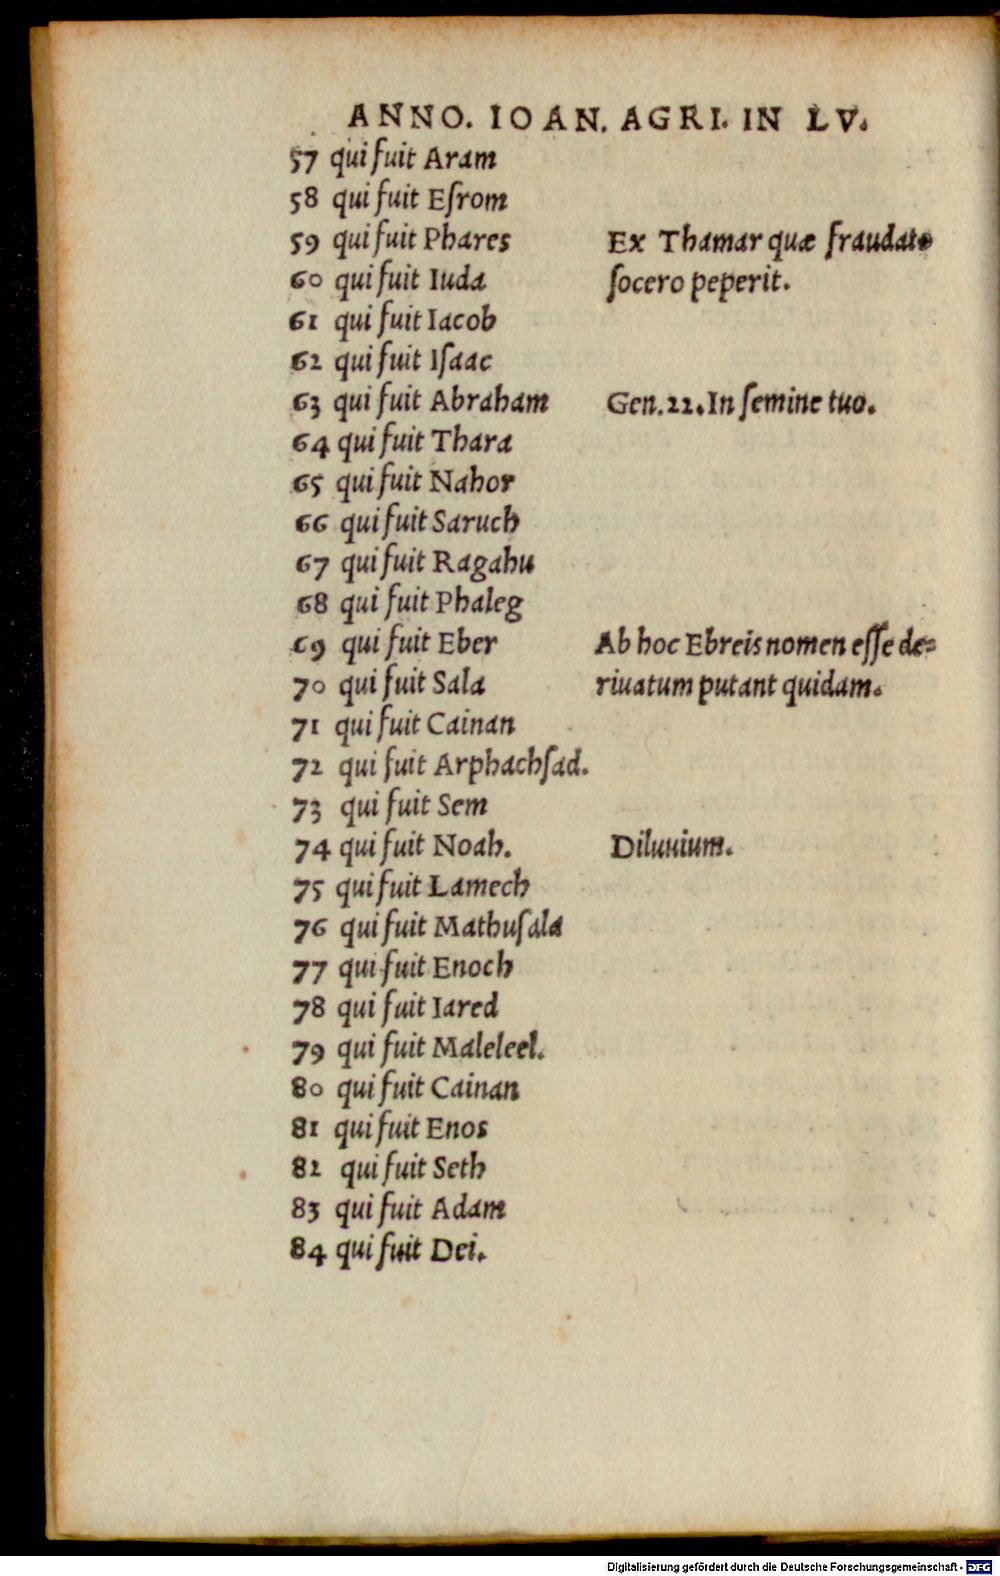 ANNO. IOAN. AGRI. IN LV.
57 qui fuit Aram
58 qui fuit Eſrom
59 qui fuit Phares Ex Thamar quæ fraudato
60 qui fuit Iuda ſocero peperit.
61 qui fuit Iacob
62 qui fuit Iſaac
63 qui fuit Abraham Gen.22. In ſemine tuo.
64 qui fuit Thara
65 qui fuit Nahor
66 qui fuit Saruch
67 qui fuit Ragahu
68 qui fuit Phaleg
69 qui fuit Eber Ab hoc Ebreis nomen eſſe de=
70 qui fuit Sala riuatum putant quidam.
71 qui fuit Cainan
72 qui fuit Arphachſad.
73 qui fuit Sem
74 qui fuit Noah. Diluuium.
75 qui fuit Lamech
76 qui fuit Mathuſala
77 qui fuit Enoch
78 qui fuit Iared
79 qui fuit Maleleel.
80 qui fuit Cainan
81 qui fuit Enos
82 qui fuit Seth
83 qui fuit Adam
84 qui fuit Dei.
Digitalisierung gefördert durch die Deutsche Forschungsgemeinschaft - DFG